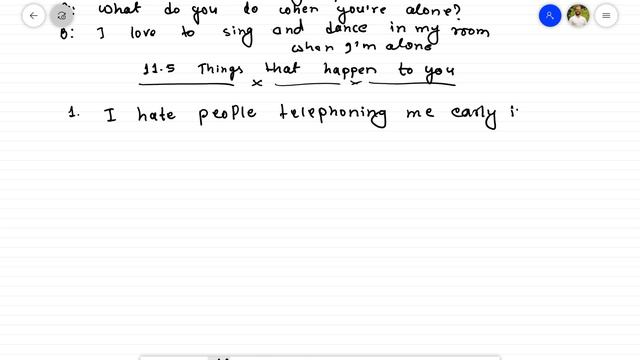 what do you do when you're alone?
B: I love to sing and dance in my room
when I'm alone
11.5 Things that happen to you
1. I hate people telephoning me early i